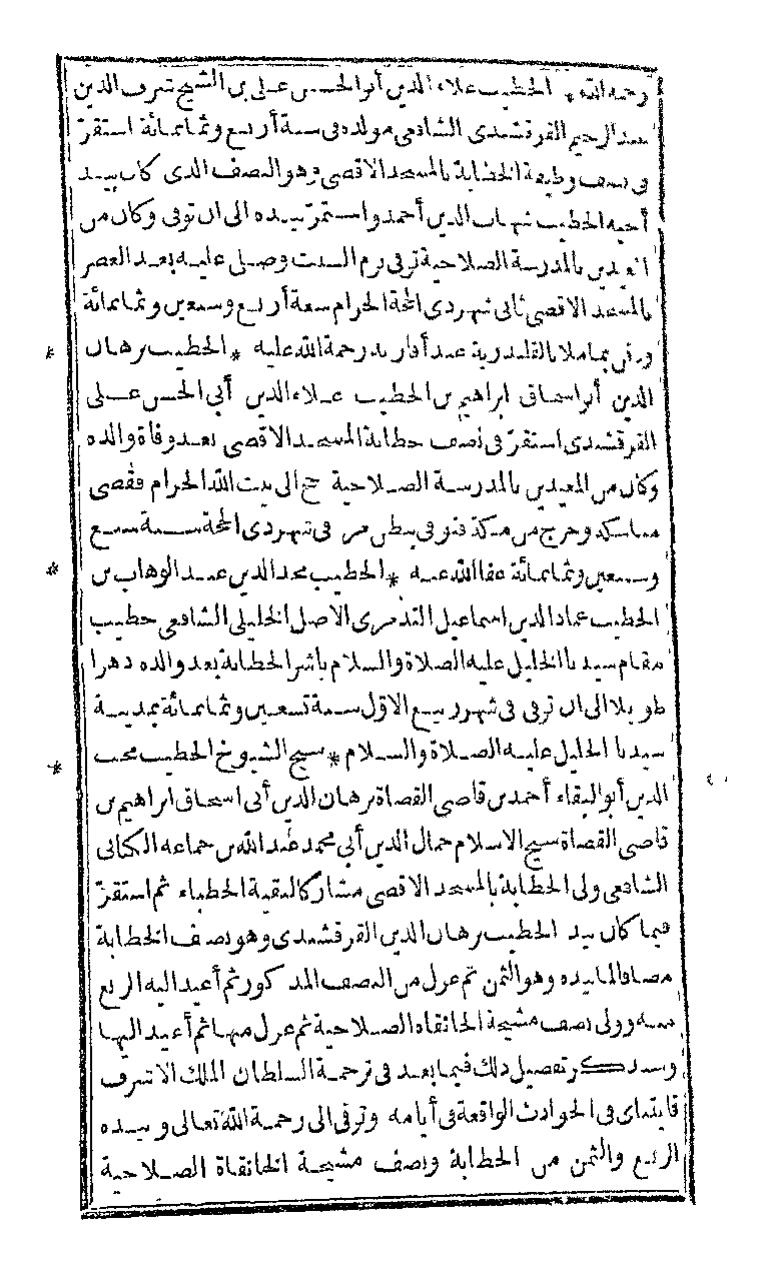 رحمه الله * الخطيب علاء الدين أبو الحسن على بن الشيخ شرف الدين
عبد الرحيم القرقشندى الشافعى مولده فى سنة أربع وثمانمائة استقر
فى نصف وظيفة الخطابة بالمسجد الاقصى وهو النصف الذى كان بيد
أخيه الخطيب شهاب الدين أحمد واستمر بيده الى ان توفى وكان من
المعيدين بالمدرسة الصلاحية توفى يوم السبت وصلى عليه بعد العصر
بالمسجد الاقصى ثانى شهر ذى الحجة الحرام سعة أربع وسبعين وثمانمائة
ودفن بماملا بالقلندرية عند أقاربه رحمة الله عليه * الخطيب برهان
الدين أبو اسحاق ابراهيم بن الخطيب علاء الدين أبى الحسن على
القرقشندى استقر فى نصف خطابة المسجد الاقصى بعد وفاة والده
وكان من المعيدين بالمدرسة الصلاحية حج الى بيت الله الحرام فقضى
مناسكه وخرج من مكة فتوفى ببطن مر فى شهر ذى الحجة سنة سبع
وسبعين وثمانمائة عفا الله عنه * الخطيب مجد الدين عبد الوهاب بن
الخطيب عماد الدين اسماعيل التدمرى الاصل الخليلى الشافعى خطيب
مقام سيدنا الخليل عليه الصلاة والسلام باشر الخطابة بعد والده دهرا
طويلا الى ان توفى فى شهر ربيع الاول سنة تسعين وثمانمائة بمدينة
سيدنا الخليل عليه الصلاة والسلام * شيخ الشيوخ الخطيب محب
الدين أبو البقاء أحمد بن قاضى القضاة برهان الدين أبى اسحاق ابراهيم بن
قاضى القضاة شيخ الاسلام جمال الدين أبى محمد عبد الله بن جماعه الكنانى
الشافعى ولى الخطابة بالمسجد الاقصى مشاركا لبقية الخطباء ثم استقر
فيما كان بيد الخطيب برهان الدين القرقشندى وهو نصف الخطابة
مضافا لما بيده وهو الثمن ثم عزل من النصف المذكور ثم أعيد اليه الربع
منه وولى نصف مشيخة الخانقاه الصلاحية ثم عزل منها ثم أعيد اليها
وسنذكر تفصيل ذلك فيما بعد فى ترجمة السلطان الملك الاشرف
قايتباى فى الحوادث الواقعة فى أيامه وتوفى الى رحمة الله تعالى وبيده
الربع والثمن من الخطابة ونصف مشيخة الخانقاة الصلاحية